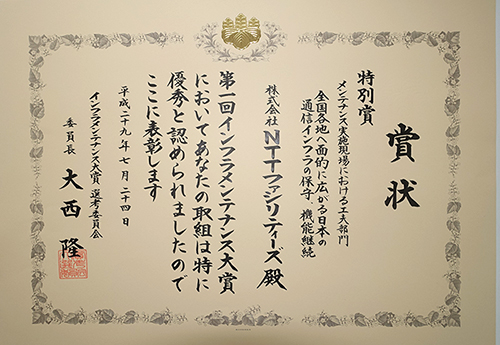 賞状
特別賞
メンテナンス実施現場における工夫部門
全国各地へ面的に広がる日本の
通信インフラの保守、機能継続
株式会社NTTファシリティーズ殿
第一回インフラメンテナンス大賞
においてあなたの取組は特に
優秀と認められましたので
ここに表彰します
平成二十九年七月二十四日
インフラメンテナンス大賞 選考委員会
委員長 大西 隆